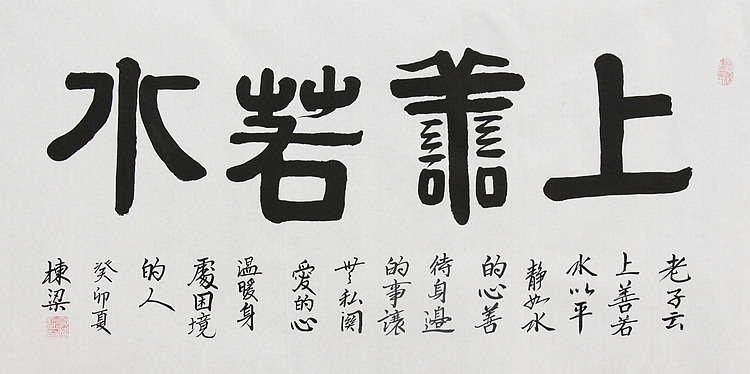 上譱若水
老子云
上善若
水以平
静如水
的心善
待身邊
的事讓
無私関
愛的心
温暖身
處困境
的人
癸卯夏
棟梁